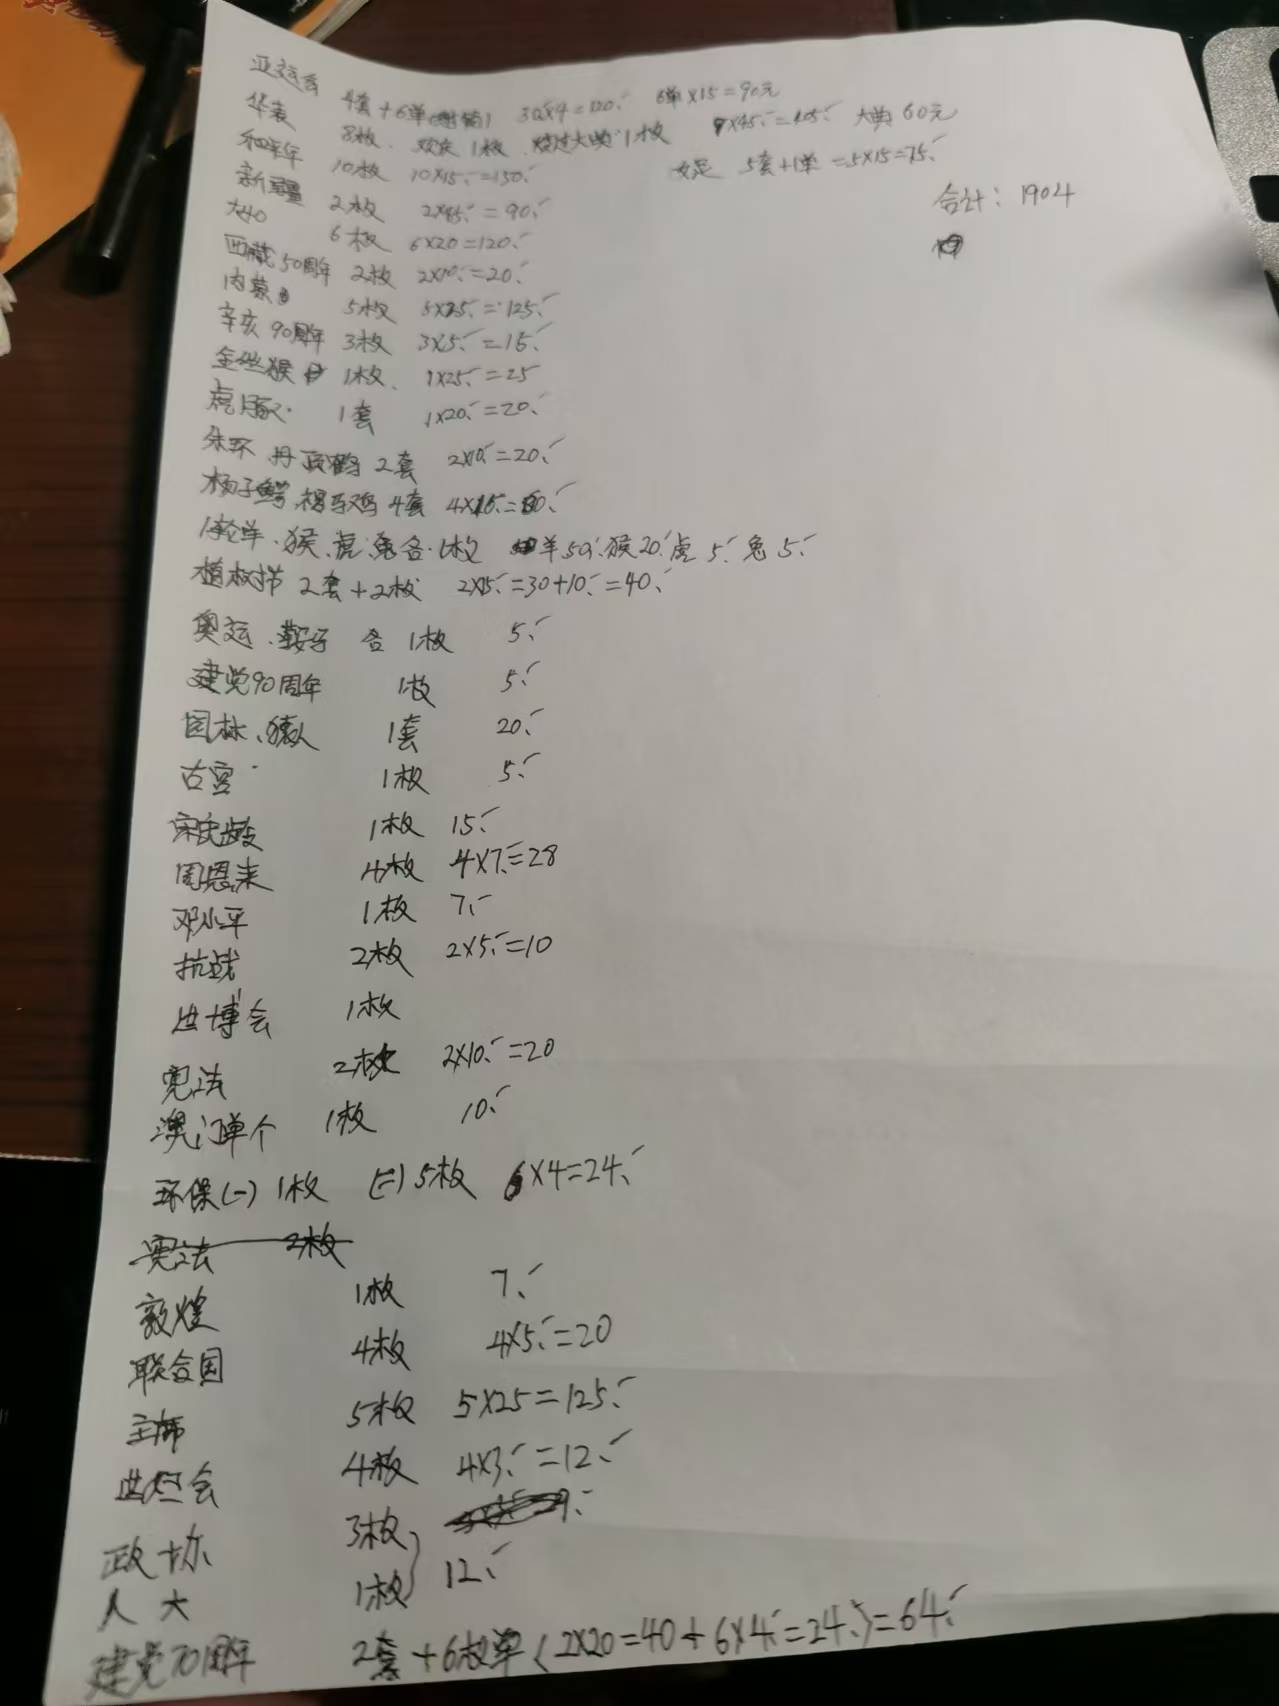 亚运会 4套+6单(射箭) 30×4=120 6单×15=90元
华表 8枚、欢庆1枚、建过大典1枚 9×45=405 大典60元
和平年 10枚 10×15=150 女足 5套+1单=5×15=75
新疆 2枚 2×45=90 合计：1904
大40 6枚 6×20=120
西藏50周年 2枚 2×10=20
内蒙 5枚 5×25=125
辛亥90周年 3枚 3×5=15
金丝猴 1枚 1×25=25
虎豚 1套 1×20=20
朱环 丹顶鹤 2套 2×10=20
杨子鳄、褐马鸡 4套 4×15=60
1轮羊、猴、虎、兔各1枚 羊50 猴20 虎5 兔5
植树节 2套+2枚 2×15=30+10=40
奥运、鞍马 各1枚 5
建党90周年 1枚 5
园林、猿人 1套 20
古宫 1枚 5
宋庆龄 1枚 15
周恩来 4枚 4×7=28
邓小平 1枚 7
抗战 2枚 2×5=10
世博会 1枚
宪法 2枚 2×10=20
澳门单个 1枚 10
环保(一) 1枚 (二) 5枚 6×4=24
宪法 2枚
敦煌 1枚 7
联合国 4枚 4×5=20
主席 5枚 5×25=125
世博会 4枚 4×3=12
政协 3枚
人大 1枚 12
建党70周年 2套+6枚单(2×20=40+6×4=24)=64